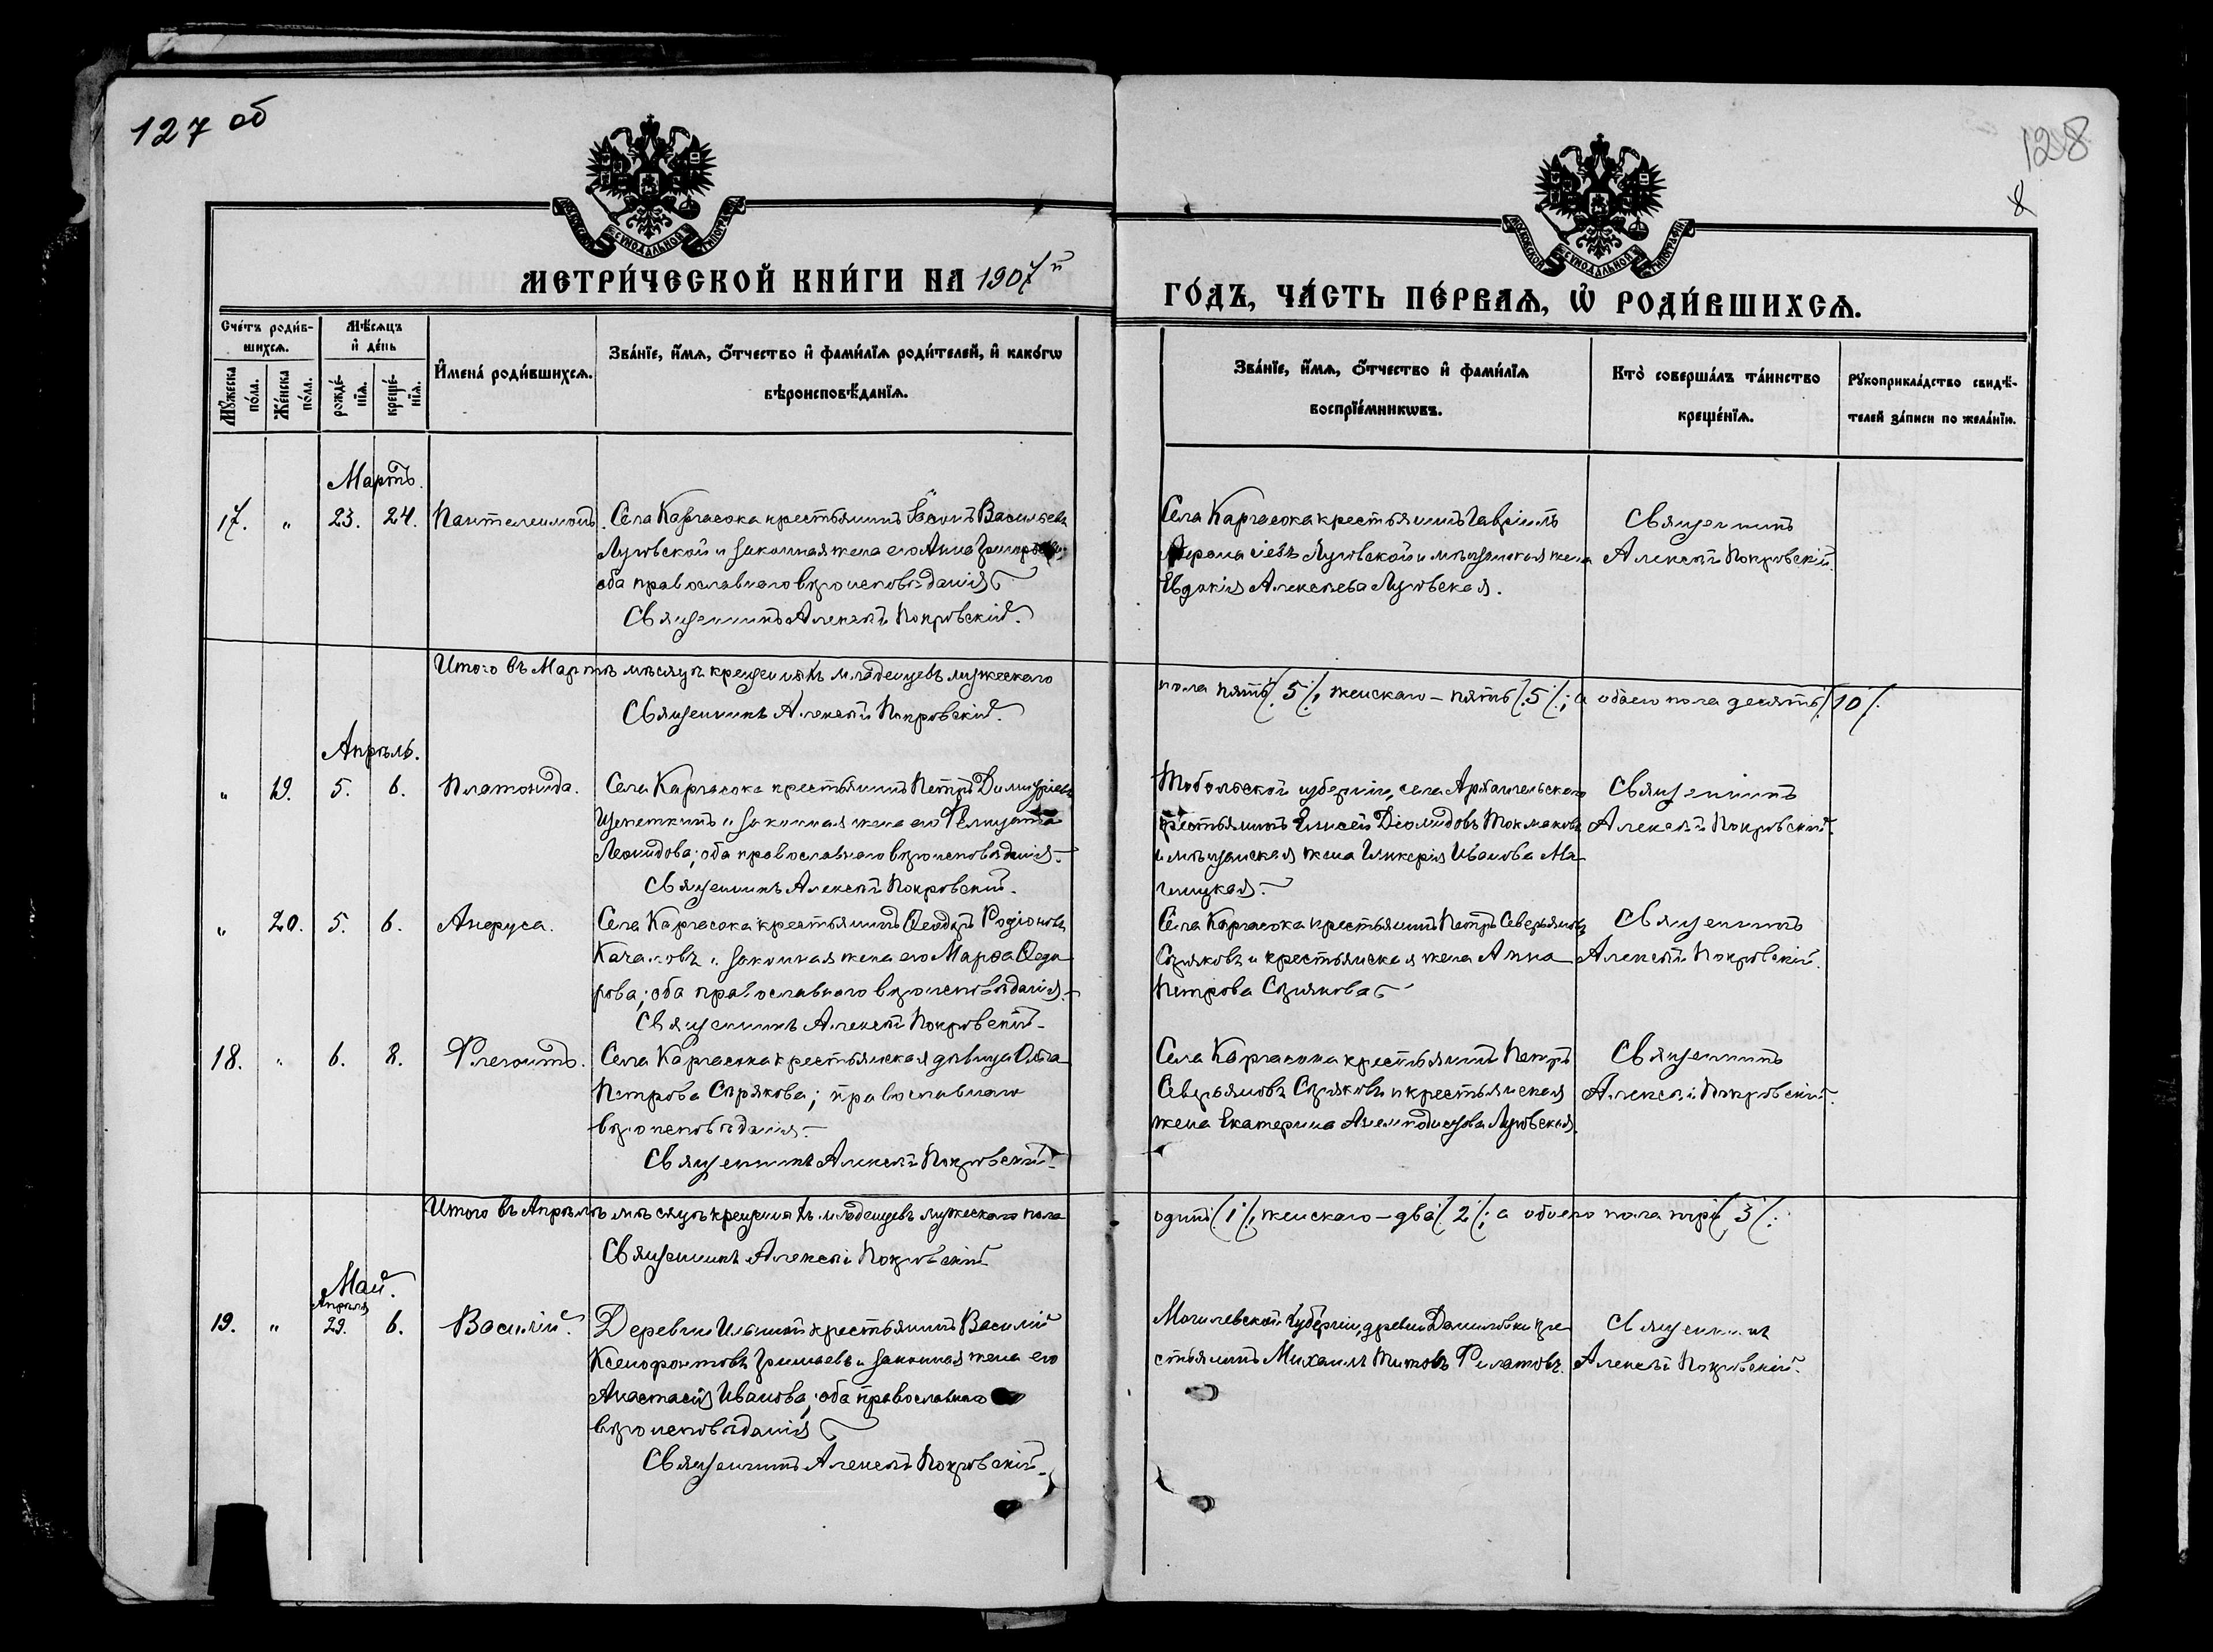 127 об
128
8
МОСКОВСКОЙ СѴНОДАЛЬНОЙ ТИПОГРАФІИ
МОСКОВСКОЙ СѴНОДАЛЬНОЙ ТИПОГРАФІИ
МЕТРИ́ЧЕСКОЙ КНИ́ГИ НА 1907й
ГО́ДЪ, ЧА́СТЬ ПЕ́РВАѦ, Ѡ҆ РОДИ́ВШИХСѦ.
Сче́тъ роди́в-
шихсѧ.
Мꙋ́жеска
по́ла.
Же́нска
по́ла.
Мѣ́сѧцъ
и҆ де́нь
рожде́-
нїѧ.
креще́-
нїѧ.
И҆мена́ роди́вшихсѧ.
Зва́нїе, и҆́мѧ, ѻ҆́тчество и҆ фами́лїѧ роди́телей, и҆ како́гѡ
вѣроисповѣ́данїѧ.
Зва́нїе, и҆́мѧ, ѻ҆́тчество и҆ фами́лїѧ
воспрїе́мникѡвъ.
Кто̀ соверша́лъ та́инство
креще́нїѧ.
Рꙋкоприкла́дство свидѣ́-
телей за́писи по жела́нїю.
Мартъ.
17. " 23. 24. Пантелеимонъ. Села Каргасока крестьянинъ Іасонъ Васильевъ
Луговской и законная жена его Анна
оба православнаго вѣроисповѣданія
Священникъ Алексѣй Покровскій.
Села Каргасока крестьянинъ Гавріилъ
Луговской и мѣщанская жена
Евдокія Алексѣева Луговская.
Священникъ
Алексѣй Покровскій.
Итого въ Мартѣ мѣсяцѣ крещенныхъ младенцевъ мужескаго
пола пять /:5:/, женскаго – пять /:5:/; а обоего пола десять /:10:/.
Священникъ Алексѣй Покровскій.
Апрѣль.
" 19. 5. 6. Платонида. Села Каргасока крестьянинъ Петръ Димитріевъ
Щепеткинъ и законная жена его Фелицата
Леонидова; оба православнаго вѣроисповѣданія.
Священникъ Алексѣй Покровскій.
Тобольской губерніи, села Архангельскаго
крестьянинъ Елисей Діомидовъ Токмаковъ
и мѣщанская жена Гликерія Иванова Ма-
Священникъ
Алексѣй Покровскій.
" 20. 5. 6. Анфуса. Села Каргасока крестьянинъ Ѳеодоръ Родіоновъ
Качаловъ и законная жена его Марѳа Ѳедо-
рова; оба православнаго вѣроисповѣданія.
Священникъ Алексѣй Покровскій.
Села Каргасока крестьянинъ Петръ Северьяновъ
Сыряковъ и крестьянская жена Анна
Петрова Сырякова
Священникъ
Алексѣй Покровскій.
18. " 6. 8. Флегонтъ. Села Каргасока крестьянская дѣвица Ольга
Петрова Сырякова; православнаго
вѣроисповѣданія.
Священникъ Алексѣй Покровскій.
Села Каргасока крестьянинъ Петръ
Северьяновъ Сыряковъ и крестьянская
жена Екатерина Анемподистова Луговская.
Священникъ
Алексѣй Покровскій.
Итого въ Апрѣлѣ мѣсяцѣ крещенныхъ младенцевъ мужескаго пола
одинъ /:1:/, женскаго – два /:2:/; а обоего пола три /:3:/.
Священникъ Алексѣй Покровскій
Май.
Апрѣля
19. " 29. 6. Василій. Деревни Ильиной крестьянинъ Василій
Ксенофонтовъ Гришаевъ и законная жена его
Анастасія Иванова; оба православнаго
вѣроисповѣданія
Священникъ Алексѣй Покровскій.
Могилевской губерніи, деревни Даниловки кре-
стьянинъ Михаилъ Титовъ Филатовъ.
Священникъ
Алексѣй Покровскій.